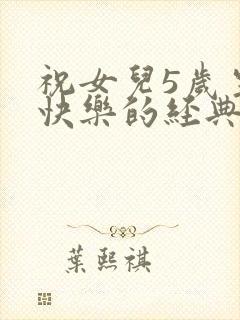 祝女兒5歲
快樂的經典
葉熙祺